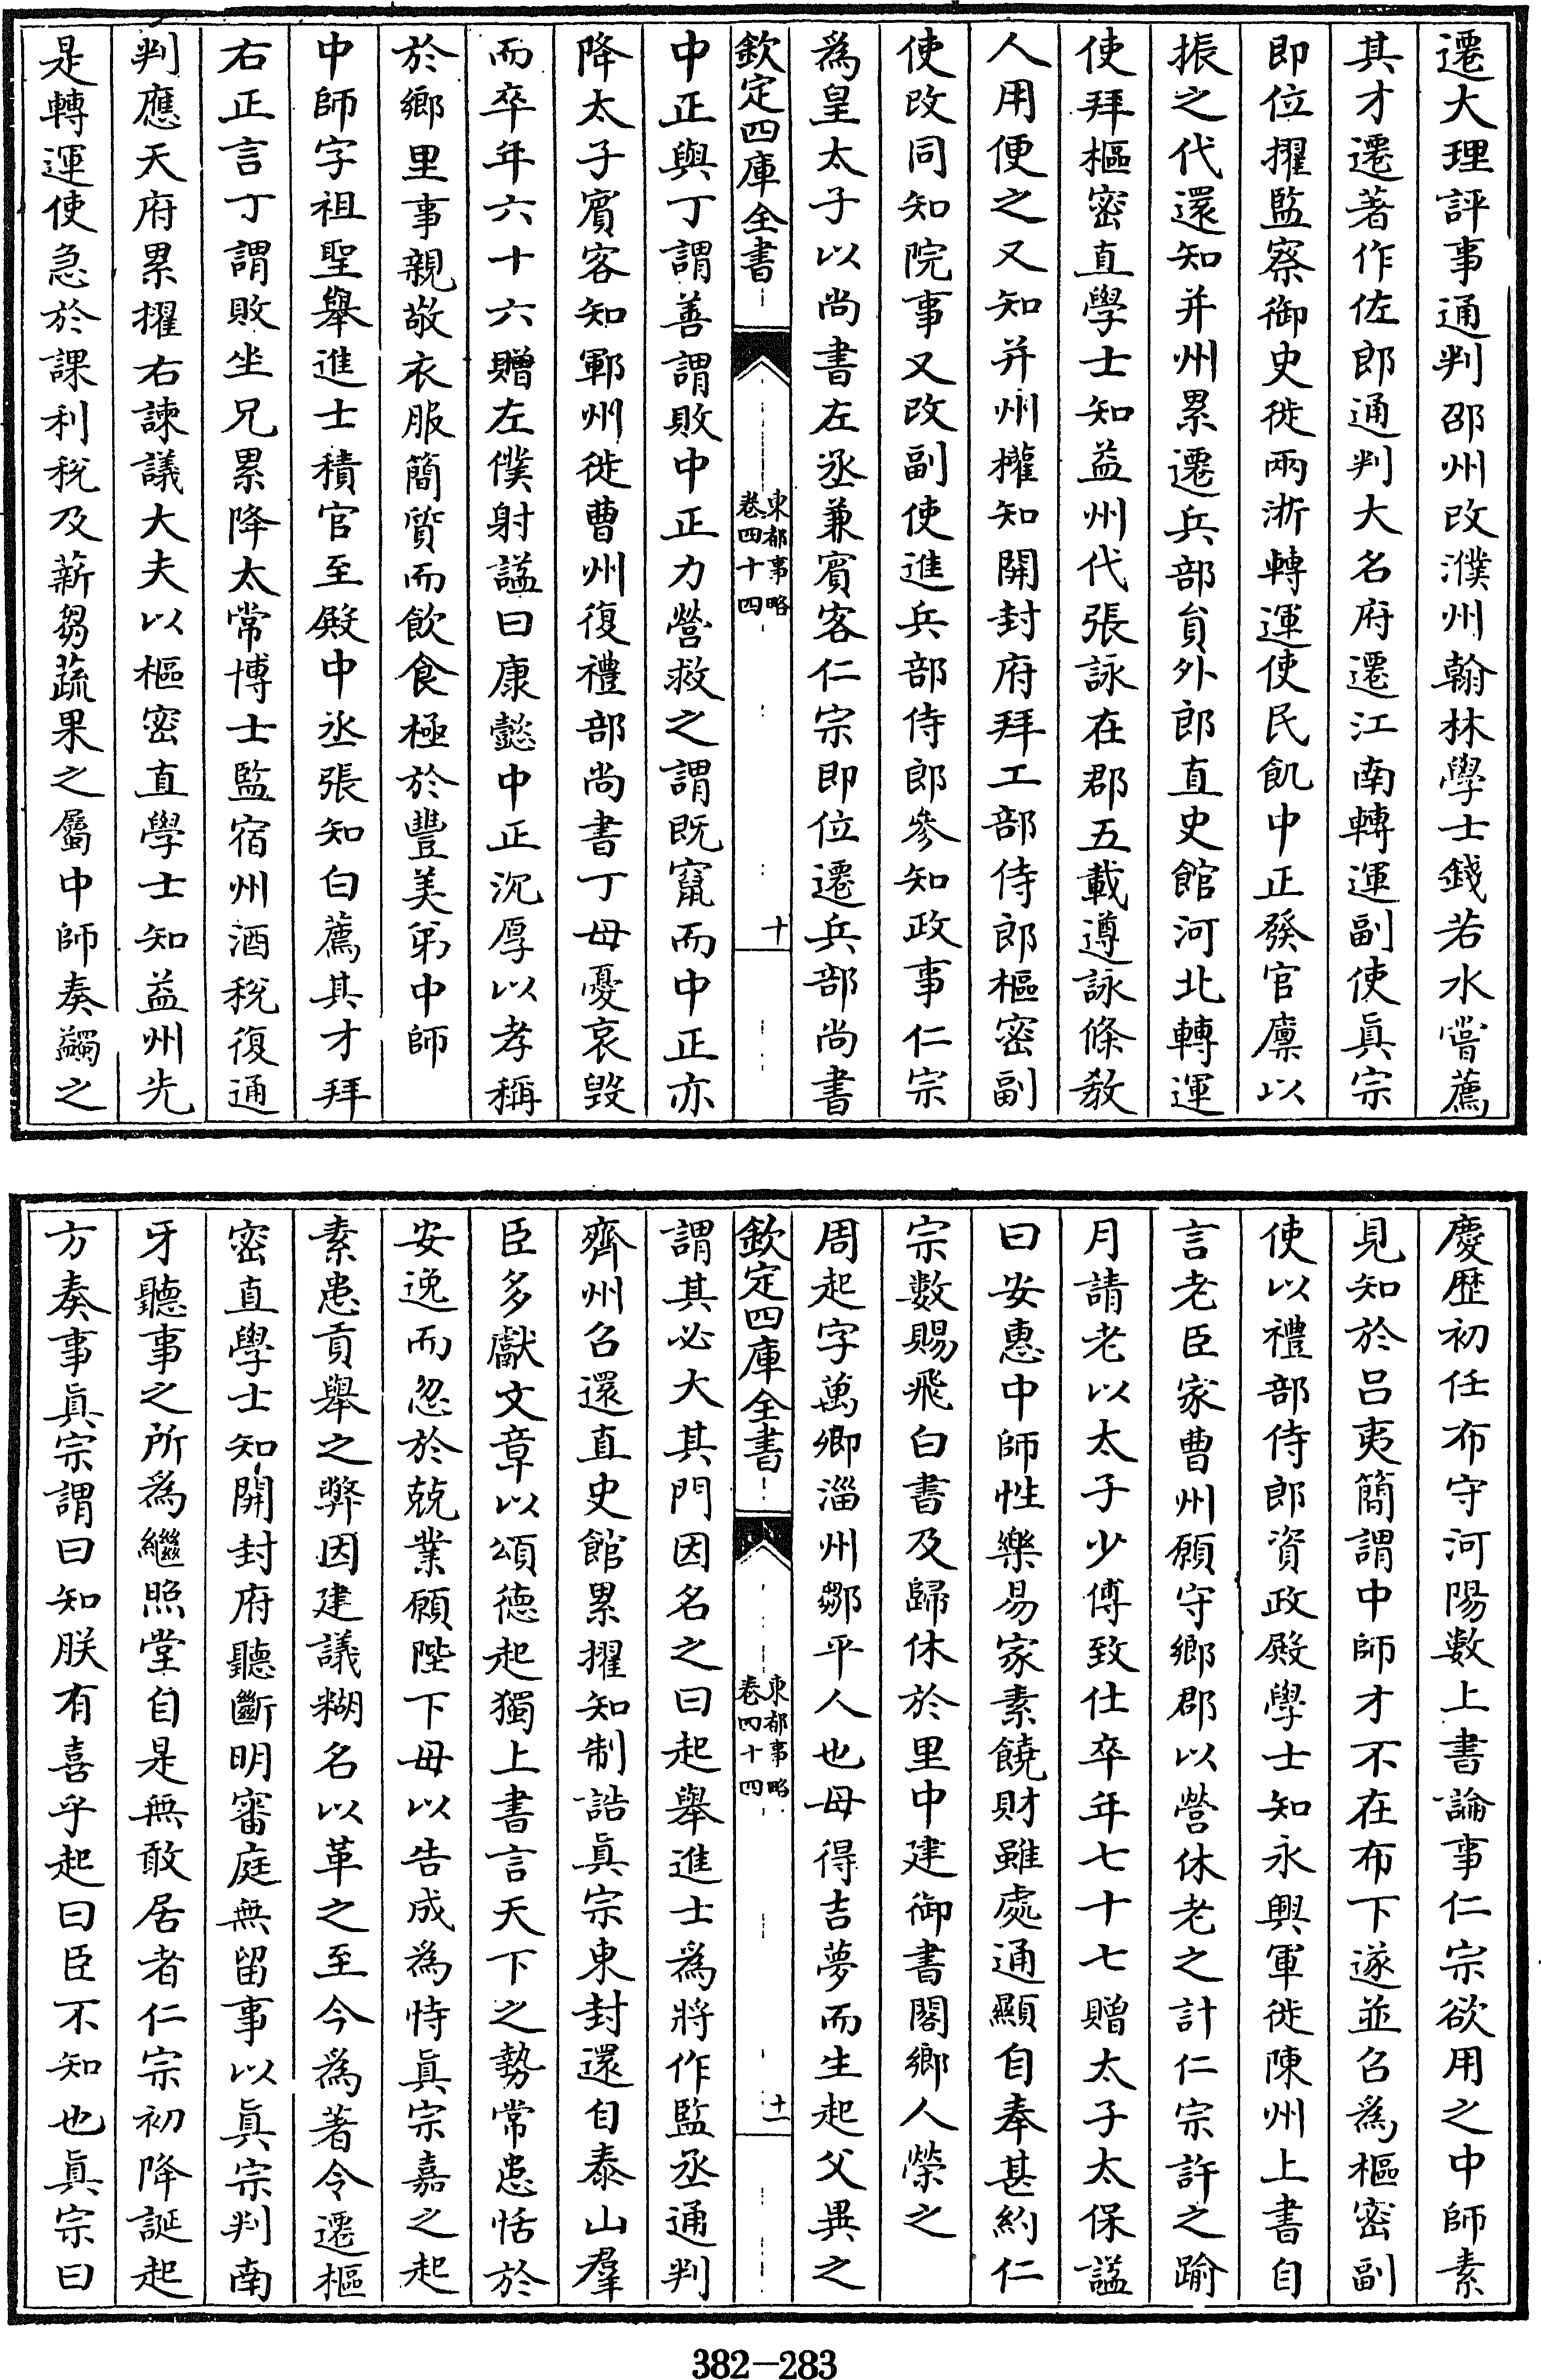 遷大理評事通判邵州改濮州翰林學士錢若水嘗薦
其才遷著作佐郎通判大名府遷江南轉運副使眞宗
即位擢監察御史徙兩浙轉運使民飢中正發官廪以
振之代還知并州累遷兵部員外郎直史館河北轉運
使拜樞密直學士知益州代張詠在郡五載遵詠條教
人用便之又知并州權知開封府拜工部侍郎樞密副
使改同知院事又改副使進兵部侍郎參知政事仁宗
為皇太子以尚書左丞兼賓客仁宗即位遷兵部尚書
欽定四庫全書
東都事略
卷四十四
十
中正與丁謂善謂敗中正力營救之謂既竄而中正亦
降太子賓客知鄆州徙曹州復禮部尚書丁母憂哀毀
而卒年六十六贈左僕射諡曰康懿中正沉厚以孝稱
於鄉里事親敬衣服簡質而飲食極於豐美弟中師
中師字祖聖舉進士積官至殿中丞張知白薦其才拜
右正言丁謂敗坐兄累降太常博士監宿州酒税復通
判應天府累擢右諫議大夫以樞密直學士知益州先
是轉運使急於課利税及薪芻蔬果之屬中師奏蠲之
慶歷初任布守河陽數上書論事仁宗欲用之中師素
見知於呂夷簡謂中師才不在布下遂並召為樞密副
使以禮部侍郎資政殿學士知永興軍徙陳州上書自
言老臣家曹州願守鄉郡以營休老之計仁宗許之踰
月請老以太子少傅致仕卒年七十七贈太子太保諡
曰安惠中師性樂易家素饒財雖處通顯自奉甚約仁
宗數賜飛白書及歸休於里中建御書閣鄉人榮之
周起字萬卿淄州鄒平人也母得吉夢而生起父異之
欽定四庫全書
東都事略
卷四十四
十一
謂其必大其門因名之曰起舉進士為將作監丞通判
齊州召還直史館累擢知制誥眞宗東封還自泰山羣
臣多獻文章以頌德起獨上書言天下之勢常患恬於
安逸而忽於兢業願陛下毋以告成為恃眞宗嘉之起
素患貢舉之弊因建議糊名以革之至今為著令遷樞
密直學士知開封府聽斷明審庭無留事以眞宗判南
牙聽事之所為繼照堂自是無敢居者仁宗初降誕起
方奏事眞宗謂曰知朕有喜乎起曰臣不知也眞宗曰
382—283